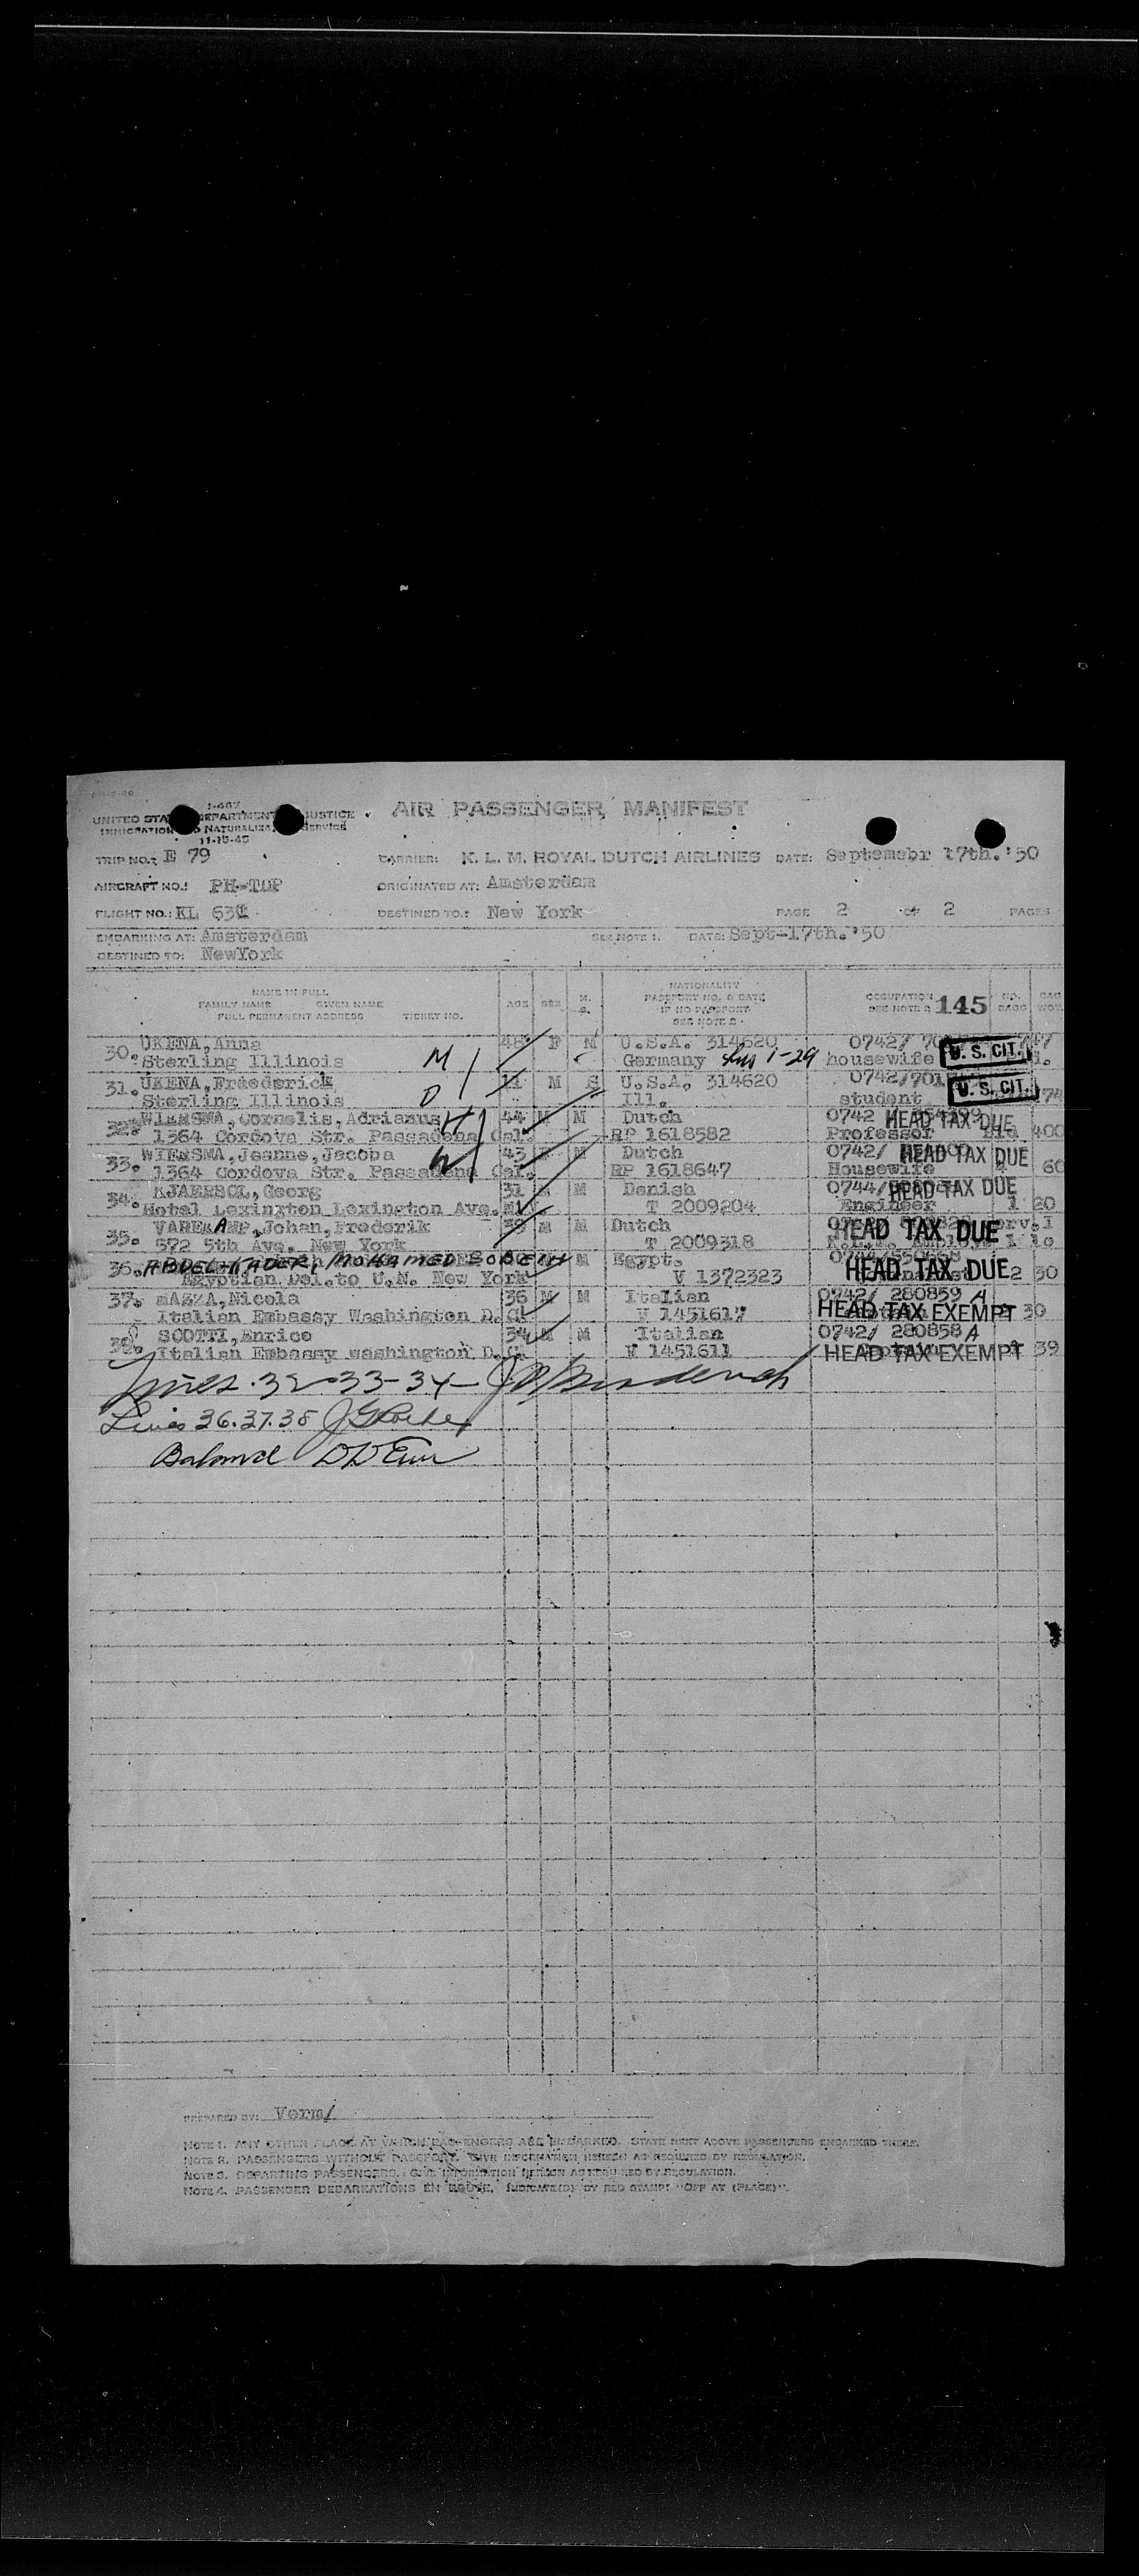 I-467
UNITED STA DEPARTMENT JUSTICE
IMMIGRATION NATURALIZA SERVICE
11-15-45
AIR PASSENGER MANIFEST
TRIP NO.: E 79 CARRIER: K. L. M. ROYAL DUTCH AIRLINES DATE: Septemebr 17th.'50
AIRCRAFT NO.: PH-TDP ORIGINATED AT: Amsterdam
FLIGHT NO.: KL DESTINED TO: New York PAGE 2 OF 2 PAGES
EMBARKING AT: Amsterdam SEE NOTE 1. DATE: Sept-17th.'50
DESTINED TO: NewYork
NAME IN FULL
FAMILY NAME GIVEN NAME
FULL PERMANENT ADDRESS TICKET NO. AGE SEX M. S. NATIONALITY PASSPORT NO. & DATE IF NO PASSPORT SEE NOTE 2 OCCUPATION SEE NOTE 2 145 NO. BAGG
30. UKENA, Anna 48 F M U.S.A. 314620 0742/ U. S. CIT.
Sterling Illinois M Germany 1-29 housewife
31. UKENA, Frederick 11 M S U.S.A. 314620 0742/701 U. S. CIT.
Sterling Illinois Ill. student
32. WIERSMA, Cornelis, Adrianus H 44 M M Dutch 0742 HEAD TAX DUE
1364 Cordova Str. Passadena Cal. RP 1618582 Professor 400
33. WIERSMA, Jeanne, Jacoba W 43 M Dutch 0742/ HEAD TAX DUE
1364 Cordova Str. Passadena Cal. RP 1618647 Housewife 60
34. Georg 31 M Danish 0744/ HEAD TAX DUE
Hotel Lexington Lexington Ave. T 2009204 Engineer 1 20
35. VAREKAMP, Johan, Frederik M M Dutch HEAD TAX DUE
572 5th Ave. New York T 2009318
36. ABDEL-KADER, MOHAMED SOBEIH M Egypt. HEAD TAX DUE
Egyptian Del. to U.N. New York V 1372323 2 30
37. MAZZA, Nicola 36 M M Italian 0742/ 280859 A
Italian Embassy Washington D.C. V 1451617 HEAD TAX EXEMPT 30
38. SCOTTI, Enrico 34 M M Italian 0742/ 280858 A
Italian Embassy washington D.C. V 1451611 HEAD TAX EXEMPT 39
Lines 32-33-34-
Lines 36.37.38
Balance
PREPARED BY: Verm/
NOTE 1. ANY OTHER PLACE AT WHICH PASSENGERS ARE EMBARKED. STATE NEXT ABOVE PASSENGERS EMBARKED THERE.
NOTE 2. PASSENGERS WITHOUT PASSPORT. GIVE INFORMATION HEREON AS REQUIRED BY REGULATION.
NOTE 3. DEPARTING PASSENGERS. GIVE INFORMATION HEREON AS REQUIRED BY REGULATION.
NOTE 4. PASSENGER DEBARKATIONS EN ROUTE. INDICATE(D) BY RED STAMP: "OFF AT (PLACE)".